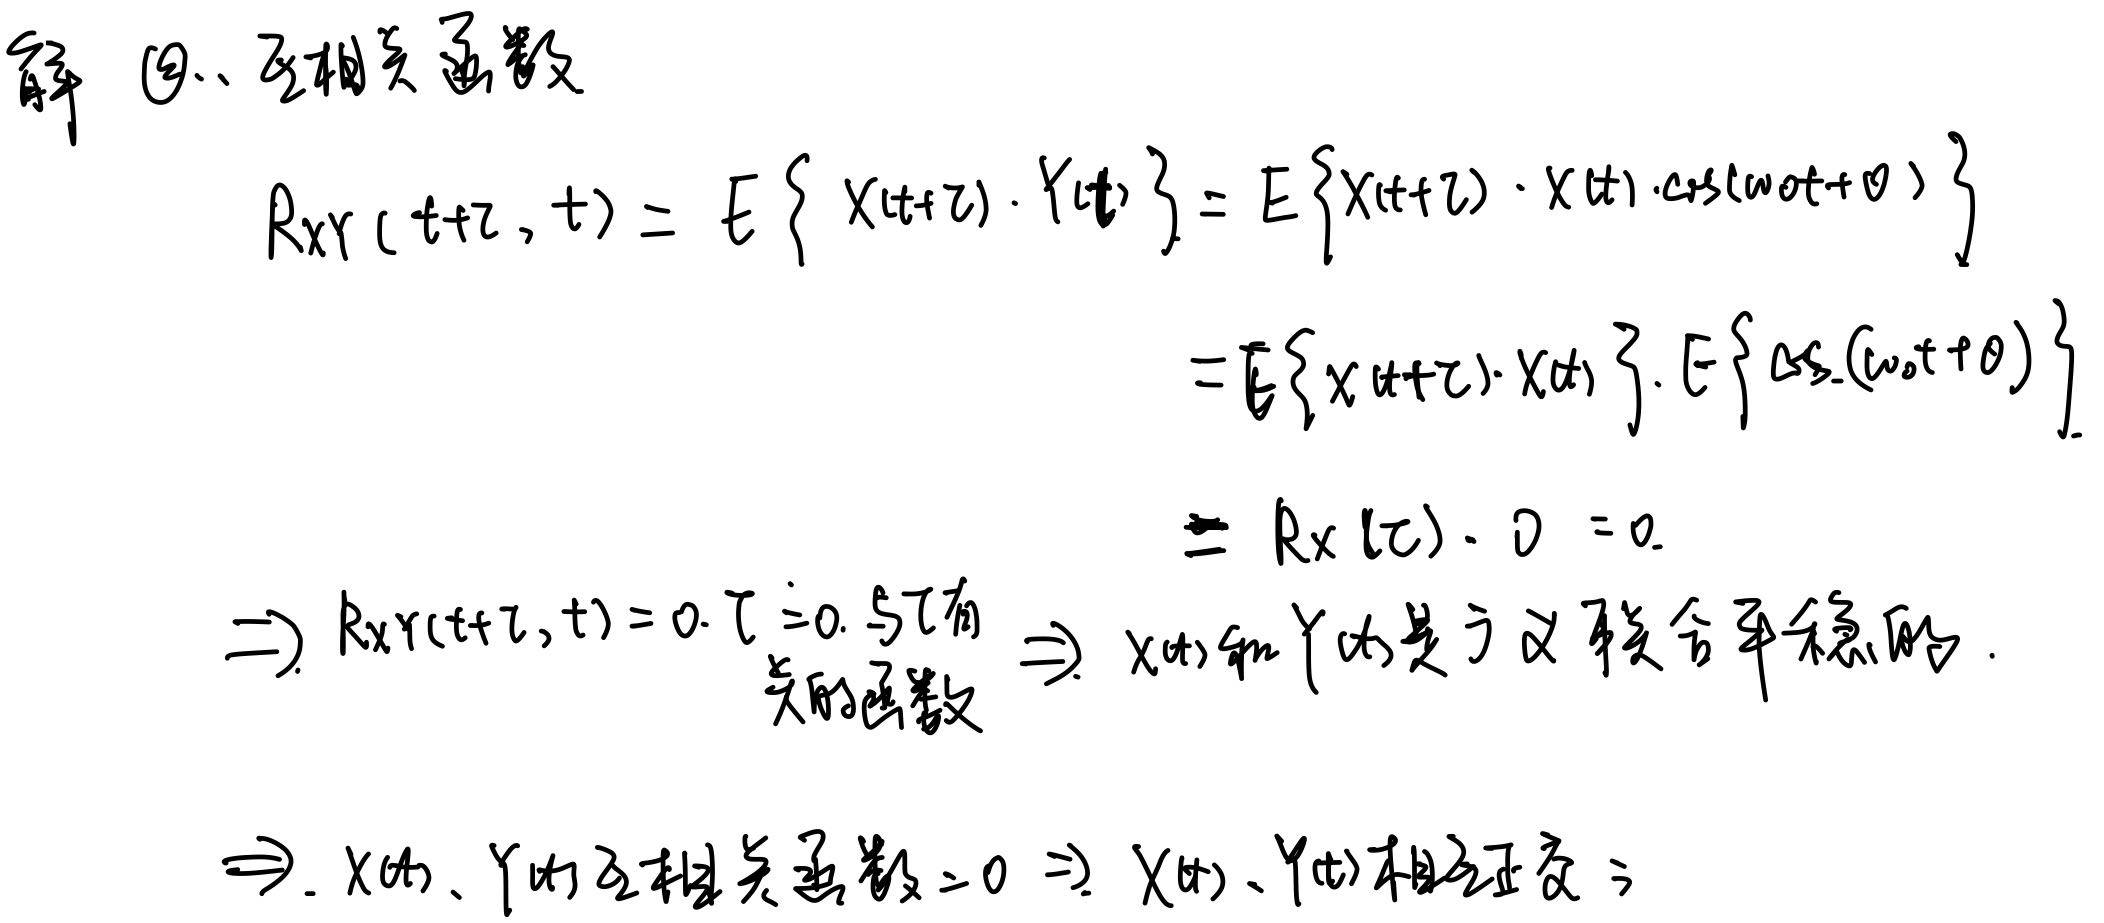 解 ②、互相关函数
R_XY(t+τ, t) = E{X(t+τ)·Y(t)} = E{X(t+τ)·X(t)·cos(ω₀t+θ)}
= E{X(t+τ)·X(t)}·E{cos(ω₀t+θ)}
= R_X(τ)·0 = 0
⇒ R_XY(t+τ, t) = 0. τ=0. 与τ有关的函数 ⇒ X(t)和Y(t)是广义联合平稳的.
⇒ X(t)、Y(t)互相关函数=0 ⇒ X(t)、Y(t)相互正交;